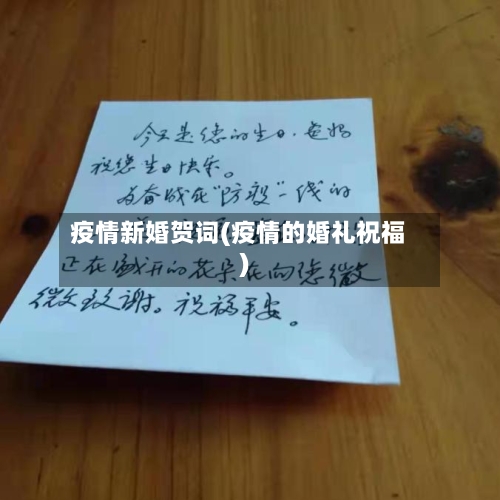 今天是您的生日。爸妈
祝您生日快乐。
为奋战在“防疫”一线的
疫情新婚贺词(疫情的婚礼祝福
)
正在盛开的花朵在向您微
微致谢。祝福平安。